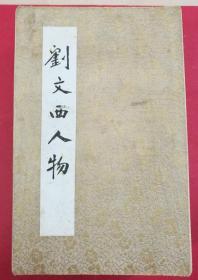 劉文西人物